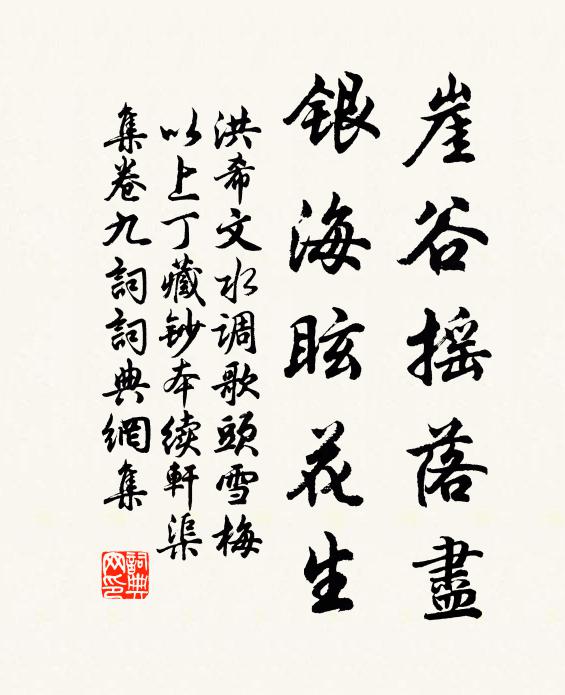 崖谷摇落盡
銀海眩花生
洪希文水调歌頭雪梅
以上丁藏鈔本續軒渠
集卷九詞詞典網集
詞典网印